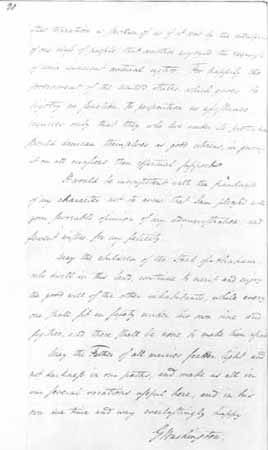 of toleration is spoken of as if it was by the indulgence
of one class of people, that another enjoyed the exercise
of their inherent natural rights. For happily the
government of the United States, which gives to
bigotry no sanction, to persecution no assistance
requires only that they who live under its protection
should demean themselves as good citizens, in giving
it on all occasions their effectual support.
It would be inconsistent with the frankness
of my character not to avow that I am pleased with
your favorable opinion of my administration, and
fervent wishes for my felicity.
May the children of the Stock of Abraham,
who dwell in this land, continue to merit and enjoy
the good will of the other inhabitants, while every
one shall sit in safety under his own vine and
figtree, and there shall be none to make him afraid.
May the Father of all mercies scatter light and
not darkness in our paths, and make us all in
our several vocations useful here, and in his
own due time and way everlastingly happy.
G Washington.